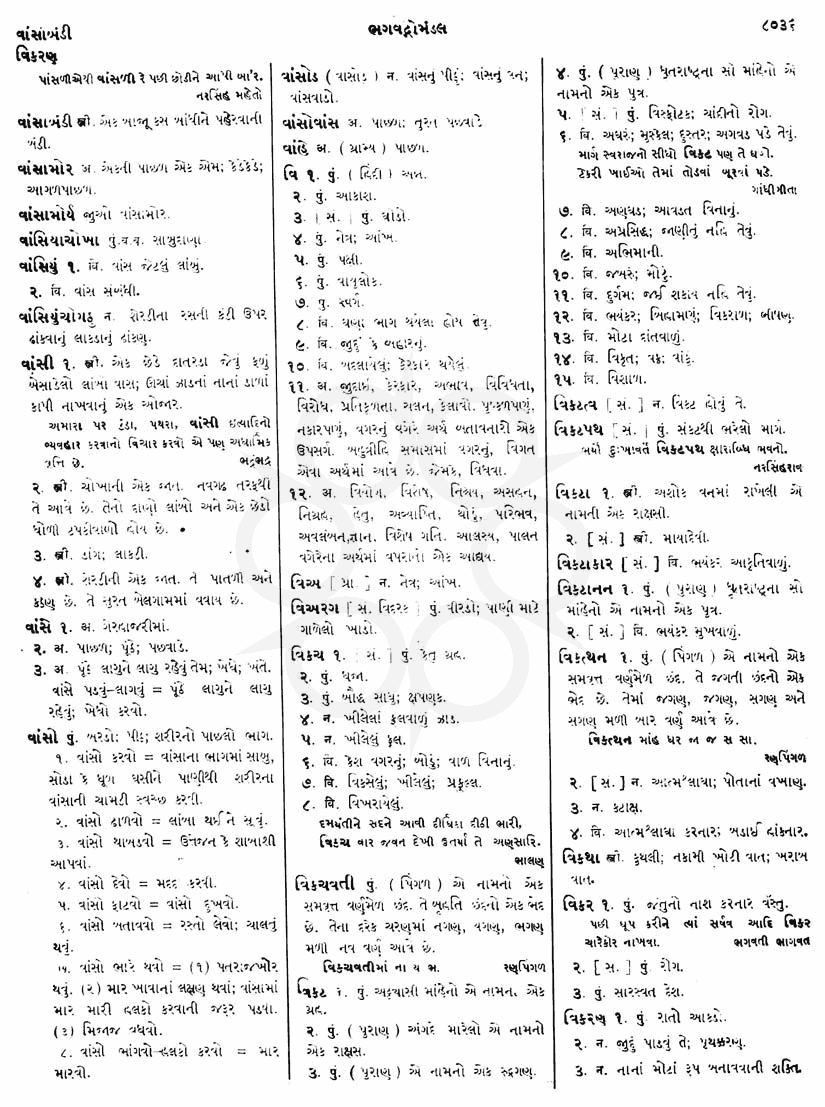 વાંસાબંડી
વિકરણ
ભગવદ્ગોમંડલ
૮૦૩૬
પાંસળીએથી વાંસળી રે પછી છોડીને આપી બા'ર.
નરસિંહ મહેતો
વાંસાબંડી સ્ત્રી. એક બાજૂ કસ બાંધીને પહેરવાની
બંડી.
વાંસામોર અ. એકની પાછળ એક એમ; કેડેકેડે;
આગળપાછળ.
વાંસામોર્ય જુઓ વાંસામોર.
વાંસિયાચોખા પું.બ.વ. સાબુદાણા.
વાંસિયું ૧. વિ. વાંસ જેટલું લાંબું.
૨. વિ. વાંસ સંબંધી.
વાંસિયુંચોગઠ ન. શેરડીના રસની કૂંડી ઉપર
ઢાંકવાનું લાકડાનું ઢાંકણ.
વાંસી ૧. સ્ત્રી. એક છેડે દાતરડા જેવું ફળું
બેસાડેલો લાંબો વાંસ; ઊંચાં ઝાડનાં નાનાં ડાળાં
કાપી નાખવાનું એક ઓજાર.
અમારા પર ટુંડા, પથરા, વાંસી ઇત્યાદિનો
વ્યવહાર કરવાનો વિચાર કરવો એ પણ અધાર્મિક
વૃત્તિ છે.
ભદ્રંભદ્ર
૨. સ્ત્રી. ચોખાની એક જાત. નવગઢ તરફથી
તે આવે છે. તેનો દાણો લાંબો અને એક છેડો
ધોળી ટપકીવાળો હોય છે.
૩. સ્ત્રી. ડાંગ; લાકડી.
૪. સ્ત્રી. શેરડીની એક જાત. તે પાતળી અને
કઠણ છે. તે સુરત બેલગામમાં વવાય છે.
વાંસે ૧. અ. ગેરહાજરીમાં.
૨. અ. પાછળ; પૂંઠે; પછવાડે.
૩. અ. પૂંઠે લાગુને લાગુ રહેવું તેમ; ખંધે; ખંતે.
વાંસે પડવું-લાગવું = પૂંઠે લાગુને લાગુ
રહેવું; ખેધો કરવો.
વાંસો પું. બરડો; પીઠ; શરીરનો પાછલો ભાગ.
૧. વાંસો કરવો = વાંસાના ભાગમાં સાબુ,
સોડા કે ધૂળ ઘસીને પાણીથી શરીરના
વાંસાની ચામડી સ્વચ્છ કરવી.
૨. વાંસો ઢાળવો = લાંબા થઈને સૂવું.
૩. વાંસો થાબડવો = ઉત્તેજન કે શાબાશી
આપવાં.
૪. વાંસો દેવો = મદદ કરવી.
૫. વાંસો ફાટવો = વાંસો દુખવો.
૬. વાંસો બતાવવો = રસ્તો લેવો; ચાલતું
થવું.
૭. વાંસો ભારે થવો = (૧) પતરાજખોર
થવું. (૨) માર ખાવાનાં લક્ષણ થવાં; વાંસામાં
માર મારી હલકો કરવાની જરૂર પડવી.
(૩) મિજાજ વધવો.
૮. વાંસો ભાંગવો-હલકો કરવો = માર
મારવો.
વાંસોડ ( વાંસોડ ) ન. વાંસનું પીઠું; વાંસનું વન;
વાંસવાડો.
વાંસોવાંસ અ. પાછળ; તુરત પછવાડે
વાંહે અ. ( ગ્રામ્ય ) પાછળ.
વિ ૧. પું. ( હિંદી ) અન્ન.
૨. પું. આકાશ.
૩. [ સં. ] પું. ઘોડો.
૪. પું. નેત્ર; આંખ.
૫. પું. પક્ષી.
૬. પું. વાયુલોક.
૭. પું. સ્વર્ગ.
૮. વિ. ઘણા ભાગ થયેલા હોય તેવું.
૯. વિ. જુદું કે બહારનું.
૧૦. વિ. બદલાયેલું; ફેરફાર થયેલું.
૧૧. અ. જુદાઈ, ફેરફાર, અભાવ, વિવિધતા,
વિરોધ, પ્રતિકૂળતા. ચલન, ફેલાવો. પુષ્કળપણું,
નકારપણું, વગરનું વગેરે અર્થ બતાવનારો એક
ઉપસર્ગ. બહુવ્રીહિ સમાસમાં વગરનું, વિગત
એવા અર્થમાં આવે છે. જેમકે, વિધવા.
૧૨. અ. વિયોગ, વિશેષ, નિશ્ચય, અસહન,
નિગ્રહ, હેતુ, અવ્યાપ્તિ, થોડું, પરિભવ,
અવલંબન, જ્ઞાન. વિશેષ ગતિ. આલસ્ય, પાલન
વગેરેના અર્થમાં વપરાતો એક અવ્યય.
વિઅ [ પ્રા. ] ન. નેત્ર; આંખ.
વિઅરગ [ સં. વિદરક ] પું. વીરડો; પાણી માટે
ગાળેલો ખાડો.
વિકચ ૧. [ સં. ] પું. કેતુ ગ્રહ.
૨. પું. ધ્વજા.
૩. પું. બૌદ્ધ સાધુ; ક્ષપણક.
૪. ન. ખીલેલાં ફૂલવાળું ઝાડ.
૫. ન. ખીલેલું ફૂલ.
૬. વિ. કેશ વગરનું; બોડું; વાળ વિનાનું.
૭. વિ. વિકસેલું; ખીલેલું; પ્રફુલ્લ.
૮. વિ. વિખરાયેલું.
દમયંતીને સદને આવી દીર્ઘિકા દીઠી ભારી,
વિકચ વાર જીવન દેખી ઉતર્યા તે અણુસારિ.
ભાલણ
વિકચવતી પું. ( પિંગળ ) એ નામનો એક
સમવૃત્ત વર્ણમેળ છંદ. તે બૃહતિ છંદનો એક ભેદ
છે. તેના દરેક ચરણમાં નગણ, યગણ, ભગણ
મળી નવ વર્ણ આવે છે.
વિકચવતીમાં ના ય ભ.
રણપિંગળ
વિકટ ૧. પું. અઠ્યાસી માંહેનો એ નામનો એક
ગ્રહ.
૨. પું. ( પુરાણ ) અંગદે મારેલો એ નામનો
એક રાક્ષસ.
૩. પું. ( પુરાણ ) એ નામનો એક રુદ્રગણ.
૪. પું. ( પુરાણ ) ધૃતરાષ્ટ્રના સો માંહેનો એ
નામનો એક પુત્ર.
૫. [ સં. ] પું. વિસ્ફોટક; ચાંદીનો રોગ.
૬. વિ. અઘરું; મુશ્કેલ; દુસ્તર; અગવડ પડે તેવું.
માર્ગ સ્વરાજનો સીધો વિકટ પણ તે ઘણો.
ટેકરી ખાઈઓ તેમાં તોડવાં બૂરવાં પડે.
ગાંધીગીતા
૭. વિ. અણઘડ; આવડત વિનાનું.
૮. વિ. અપ્રસિદ્ધ; જાણીતું નહિ તેવું.
૯. વિ. અભિમાની.
૧૦. વિ. જબરું; મોટું.
૧૧. વિ. દુર્ગમ; જઈ શકાય નહિ તેવું.
૧૨. વિ. ભયંકર; બિહામણું; વિકરાળ; ભીષણ.
૧૩. વિ. મોટા દાંતવાળું.
૧૪. વિ. વિકૃત; વક્ર; વાંકું.
૧૫. વિ. વિશાળ.
વિકટત્વ [ સં. ] ન. વિકટ હોવું તે.
વિકટપથ [ સં. ] પું. સંકટથી ભરેલો માર્ગ.
બચ્યો દુઃખાવર્તે વિકટપથ ક્ષારાબ્ધિ ભવનો.
નરસિંહરાવ
વિકટા ૧. સ્ત્રી. અશોક વનમાં રાખેલી એ
નામની એક રાક્ષસી.
૨. [ સં. ] સ્ત્રી. માયાદેવી.
વિકટાકાર [ સં. ] વિ. ભયંકર આકૃતિવાળું.
વિકટાનન ૧. પું. ( પુરાણ ) ધૃતરાષ્ટ્રના સો
માંહેનો એ નામનો એક પુત્ર.
૨. [ સં. ] વિ. ભયંકર મુખવાળું.
વિકત્થન ૧. પું. ( પિંગળ ) એ નામનો એક
સમવૃત્ત વર્ણમેળ છંદ. તે જગતી છંદનો એક
ભેદ છે. તેમાં જગણ, જગણ, સગણ અને
સગણ મળી બાર વર્ણ આવે છે.
વિકત્થન માંહ ધર જા જ સ સા.
રણપિંગળ
૨. [ સં. ] ન. આત્મશ્લાઘા; પોતાનાં વખાણ.
૩. ન. કટાક્ષ.
૪. વિ. આત્મશ્લાઘા કરનાર; બડાઈ હાંકનાર.
વિકથા સ્ત્રી. કુથલી; નકામી ખોટી વાત; ખરાબ
વાત.
વિકર ૧. પું. જંતુનો નાશ કરનાર વસ્તુ.
પછી ધૂપ કરીને ત્યાં સર્ષવ આદિ વિકર
ચારેકોર નાખવા.
ભગવતી ભાગવત
૨. [ સં. ] પું. રોગ.
૩. પું. સારસ્વત દેશ.
વિકરણ ૧. પું. રાતો આકડો.
૨. ન. જુદું પાડવું તે; પૃથક્કરણ.
૩. ન. નાનાં મોટાં રૂપ બનાવવાની શક્તિ.